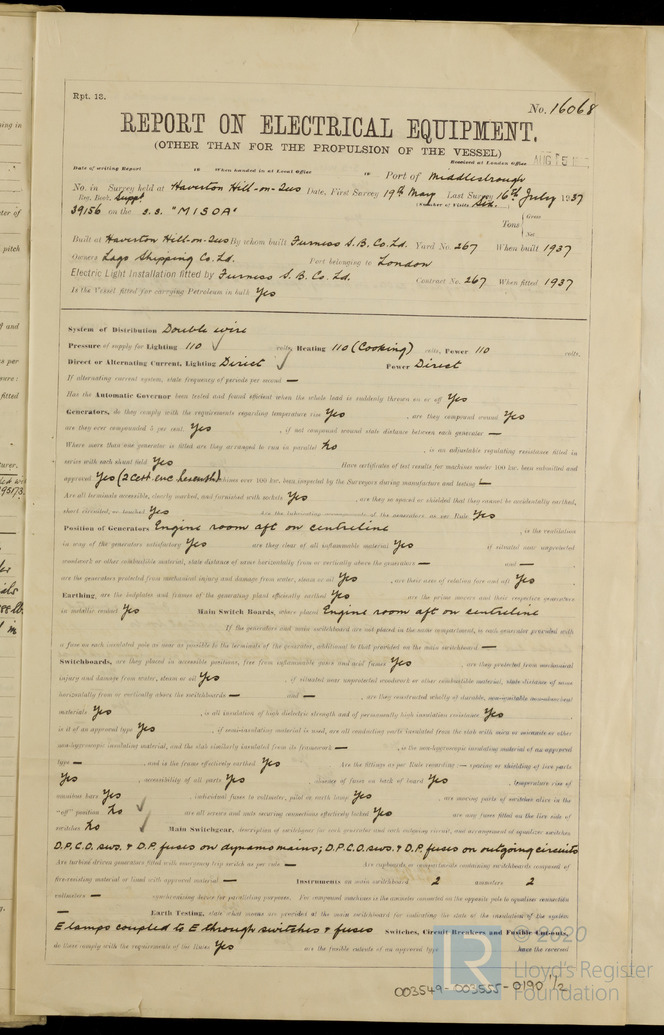 Rpt. 13.
No. 16068
REPORT ON ELECTRICAL EQUIPMENT.
(OTHER THAN FOR THE PROPULSION OF THE VESSEL)
Received at London Office AUG 5
Date of writing Report 19 When handed in at Local Office 19 Port of Middlesbrough
No. in Survey held at Haverton Hill-on-Tees Date, First Survey 19th May Last Survey 16th July 1937
Reg. Book. Suppt. (Number of Visits Six.)
39156 on the S.S. "MISOA" Tons { Gross Net
Built at Haverton Hill-on-Tees By whom built Furness S.B. Co. Ld. Yard No. 267 When built 1937
Owners Lago Shipping Co. Ld. Port belonging to London
Electric Light Installation fitted by Furness S.B. Co. Ld. Contract No. 267 When fitted 1937
Is the Vessel fitted for carrying Petroleum in bulk Yes
System of Distribution Double wire
Pressure of supply for Lighting 110 volts, Heating 110 (Cooking) volts, Power 110 volts.
Direct or Alternating Current, Lighting Direct Power Direct
If alternating current system, state frequency of periods per second —
Has the Automatic Governor been tested and found efficient when the whole load is suddenly thrown on or off Yes
Generators, do they comply with the requirements regarding temperature rise Yes, are they compound wound Yes
are they over compounded 5 per cent. Yes, if not compound wound state distance between each generator —
Where more than one generator is fitted are they arranged to run in parallel No, is an adjustable regulating resistance fitted in
series with each shunt field Yes Have certificates of test results for machines under 100 kw. been submitted and
approved Yes (2 Cert. enc. herewith) machines over 100 kw. been inspected by the Surveyors during manufacture and testing —
Are all terminals accessible, clearly marked, and furnished with sockets Yes, are they so spaced or shielded that they cannot be accidentally earthed,
short circuited, or touched Yes Are the lubricating arrangements of the generators as per Rule Yes
Position of Generators Engine room aft on centreline, is the ventilation
in way of the generators satisfactory Yes are they clear of all inflammable material Yes if situated near unprotected
woodwork or other combustible material, state distance of same horizontally from or vertically above the generators — and —
are the generators protected from mechanical injury and damage from water, steam or oil Yes, are their axes of rotation fore and aft Yes
Earthing, are the bedplates and frames of the generating plant efficiently earthed Yes are the prime movers and their respective generators
in metallic contact Yes Main Switch Boards, where placed Engine room aft on centreline
If the generators and main switchboard are not placed in the same compartment, is each generator provided with
a fuse on each insulated pole as near as possible to the terminals of the generator, additional to that provided on the main switchboard —
Switchboards, are they placed in accessible positions, free from inflammable gases and acid fumes Yes, are they protected from mechanical
injury and damage from water, steam or oil Yes, if situated near unprotected woodwork or other combustible material, state distance of same
horizontally from or vertically above the switchboards — and —, are they constructed wholly of durable, non-ignitable non-absorbent
materials Yes, is all insulation of high dielectric strength and of permanently high insulation resistance Yes
is it of an approved type Yes, if semi-insulating material is used, are all conducting parts insulated from the slab with mica or micanite or other
non-hygroscopic insulating material, and the slab similarly insulated from its framework —, is the non-hygroscopic insulating material of an approved
type —, and is the frame effectively earthed Yes Are the fittings as per Rule regarding:— spacing or shielding of live parts
Yes, accessibility of all parts Yes, absence of fuses on back of board Yes, temperature rise of
omnibus bars Yes, individual fuses to voltmeter, pilot or earth lamp Yes, are moving parts of switches alive in the
"off" position No are all screws and nuts securing connections effectively locked Yes are any fuses fitted on the live side of
switches No Main Switchgear, description of switchgear for each generator and each outgoing circuit, and arrangement of equaliser switches
D.P.C.O. sws. & D.P. fuses on dynamo mains; D.P.C.O. sws. & D.P. fuses on outgoing circuits
Are turbine driven generators fitted with emergency trip switch as per rule — Are cupboards or compartments containing switchboards composed of
fire-resisting material or lined with approved material — Instruments on main switchboard 2 ammeters 2
voltmeters — synchronising device for paralleling purposes. For compound machines is the ammeter connected on the opposite pole to equaliser connection
— Earth Testing, state what means are provided at the main switchboard for indicating the state of the insulation of the system
E lamps coupled to E through switches & fuses Switches, Circuit Breakers and Fusible Cut-outs,
do these comply with the requirements of the Rules Yes are the fusible cutouts of an approved type have the reversed
© 2020
Lloyd's Register
Foundation
003549-003555-0190 1/2